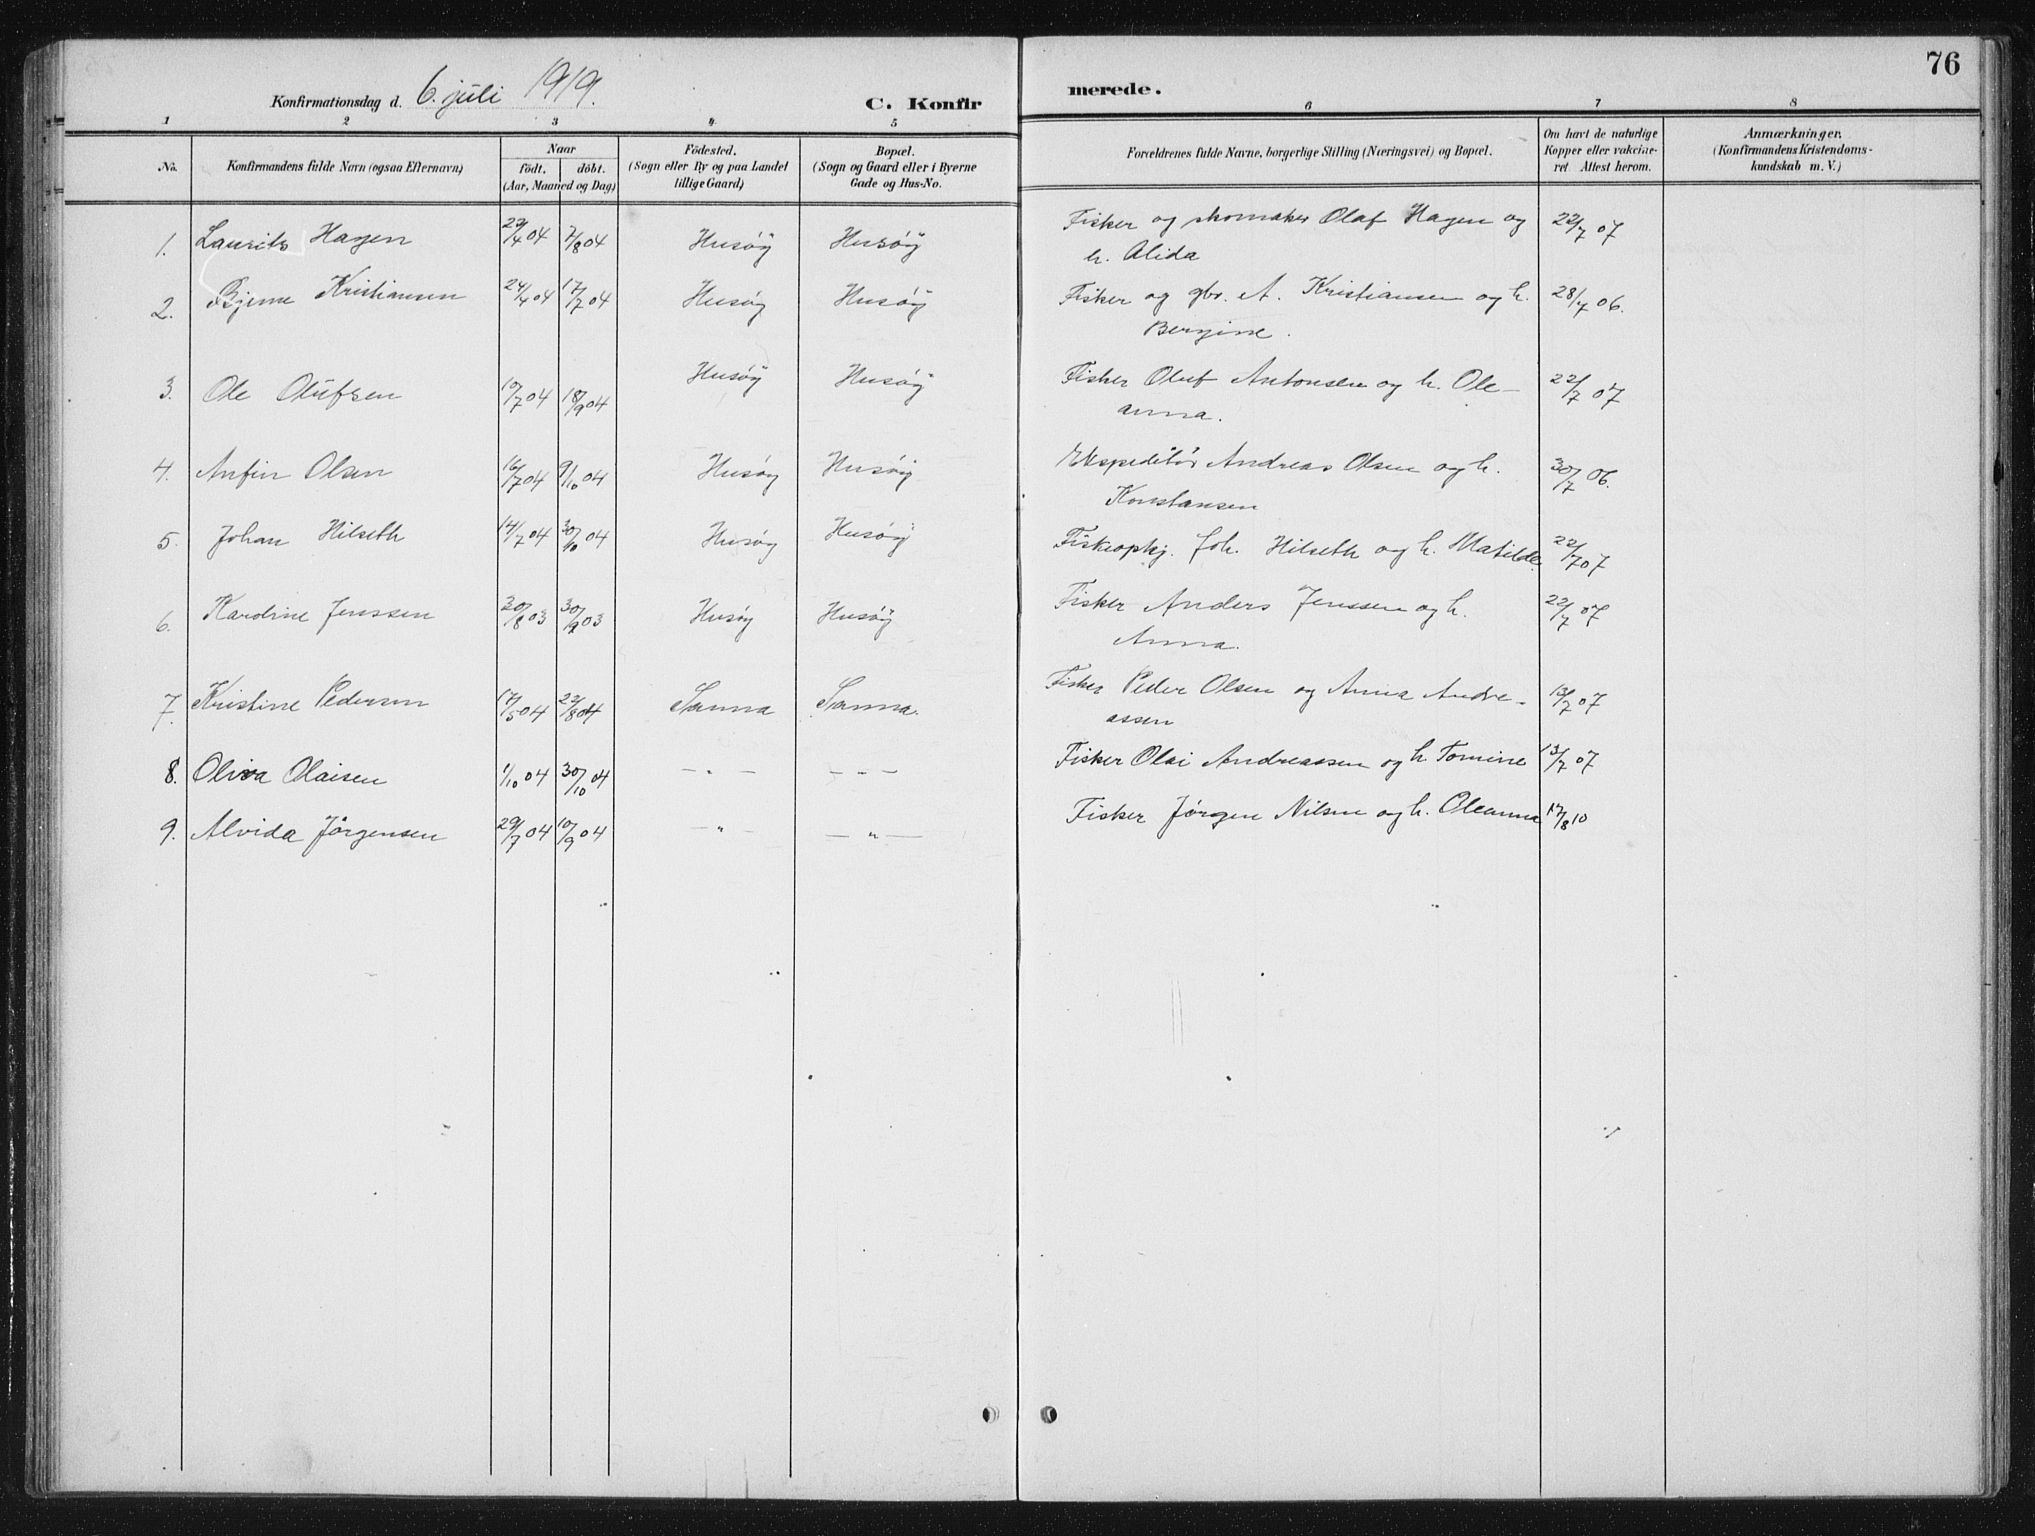 76
Konfirmationsdag d. 6. juli 1919. C. Konfirmerede.
1 2 3 4 5 6 7 8
No. Konfirmandens fulde Navn (ogsaa Efternavn) Naar født. døbt. (Aar, Maaned og Dag) Födested. (Sogn eller By og paa Landet tillige Gaard) Bopæl. (Sogn og Gaard eller i Byerne Gade og Hus-No. Forældrenes fulde Navne, borgerlige Stilling (Næringsvei) og Bopæl. Om havt de naturlige Kopper eller vakcineret. Attest herom. Anmærkninger. (Konfirmandens Kristendomskundskab m. V.)
1. Laurits Hagen 29/4 04 7/8 04 Husøy Husøy Fisker og skomaker Olaf Hagen og 22/7 07
h. Alida
2. Bjerne Kristiansen 24/4 04 17/7 04 Husøy Husøy Fisker og gbr. A. Kristiansen og h. 28/7 06.
Bergine.
3. Ole Olufsen 10/7 04 18/9 04 Husøy Husøy Fisker Oluf Antonsen og h. Ole- 22/7 07
anna.
4. Anfin Olsen 16/7 04 9/10 04 Husøy Husøy Ekspeditør Andreas Olsen og h. 30/7 06.
Konstansen
5. Johan Hilseth 14/7 04 30/10 04 Husøy Husøy Fiskeopkj. Joh. Hilseth og h. Matilde 22/7 07
6. Karoline Jenssen 30/8 03 30/9 03 Husøy Husøy Fisker Anders Jenssen og h. 22/7 07
Anna.
7. Kristine Pedersen 17/5 04 22/8 04 Sanna Sanna. Fisker Peder Olsen og Anna Andre- 13/7 07
assen
8. Oliva Olaisen 1/10 04 30/10 04 — „ — — „ — Fisker Olai Andreassen og h. Tomine 13/7 07
9. Alvida Jørgensen 29/7 04 10/9 04 — „ — — „ — Fisker Jørgen Nilsen og h. Oleanna 17/8 10